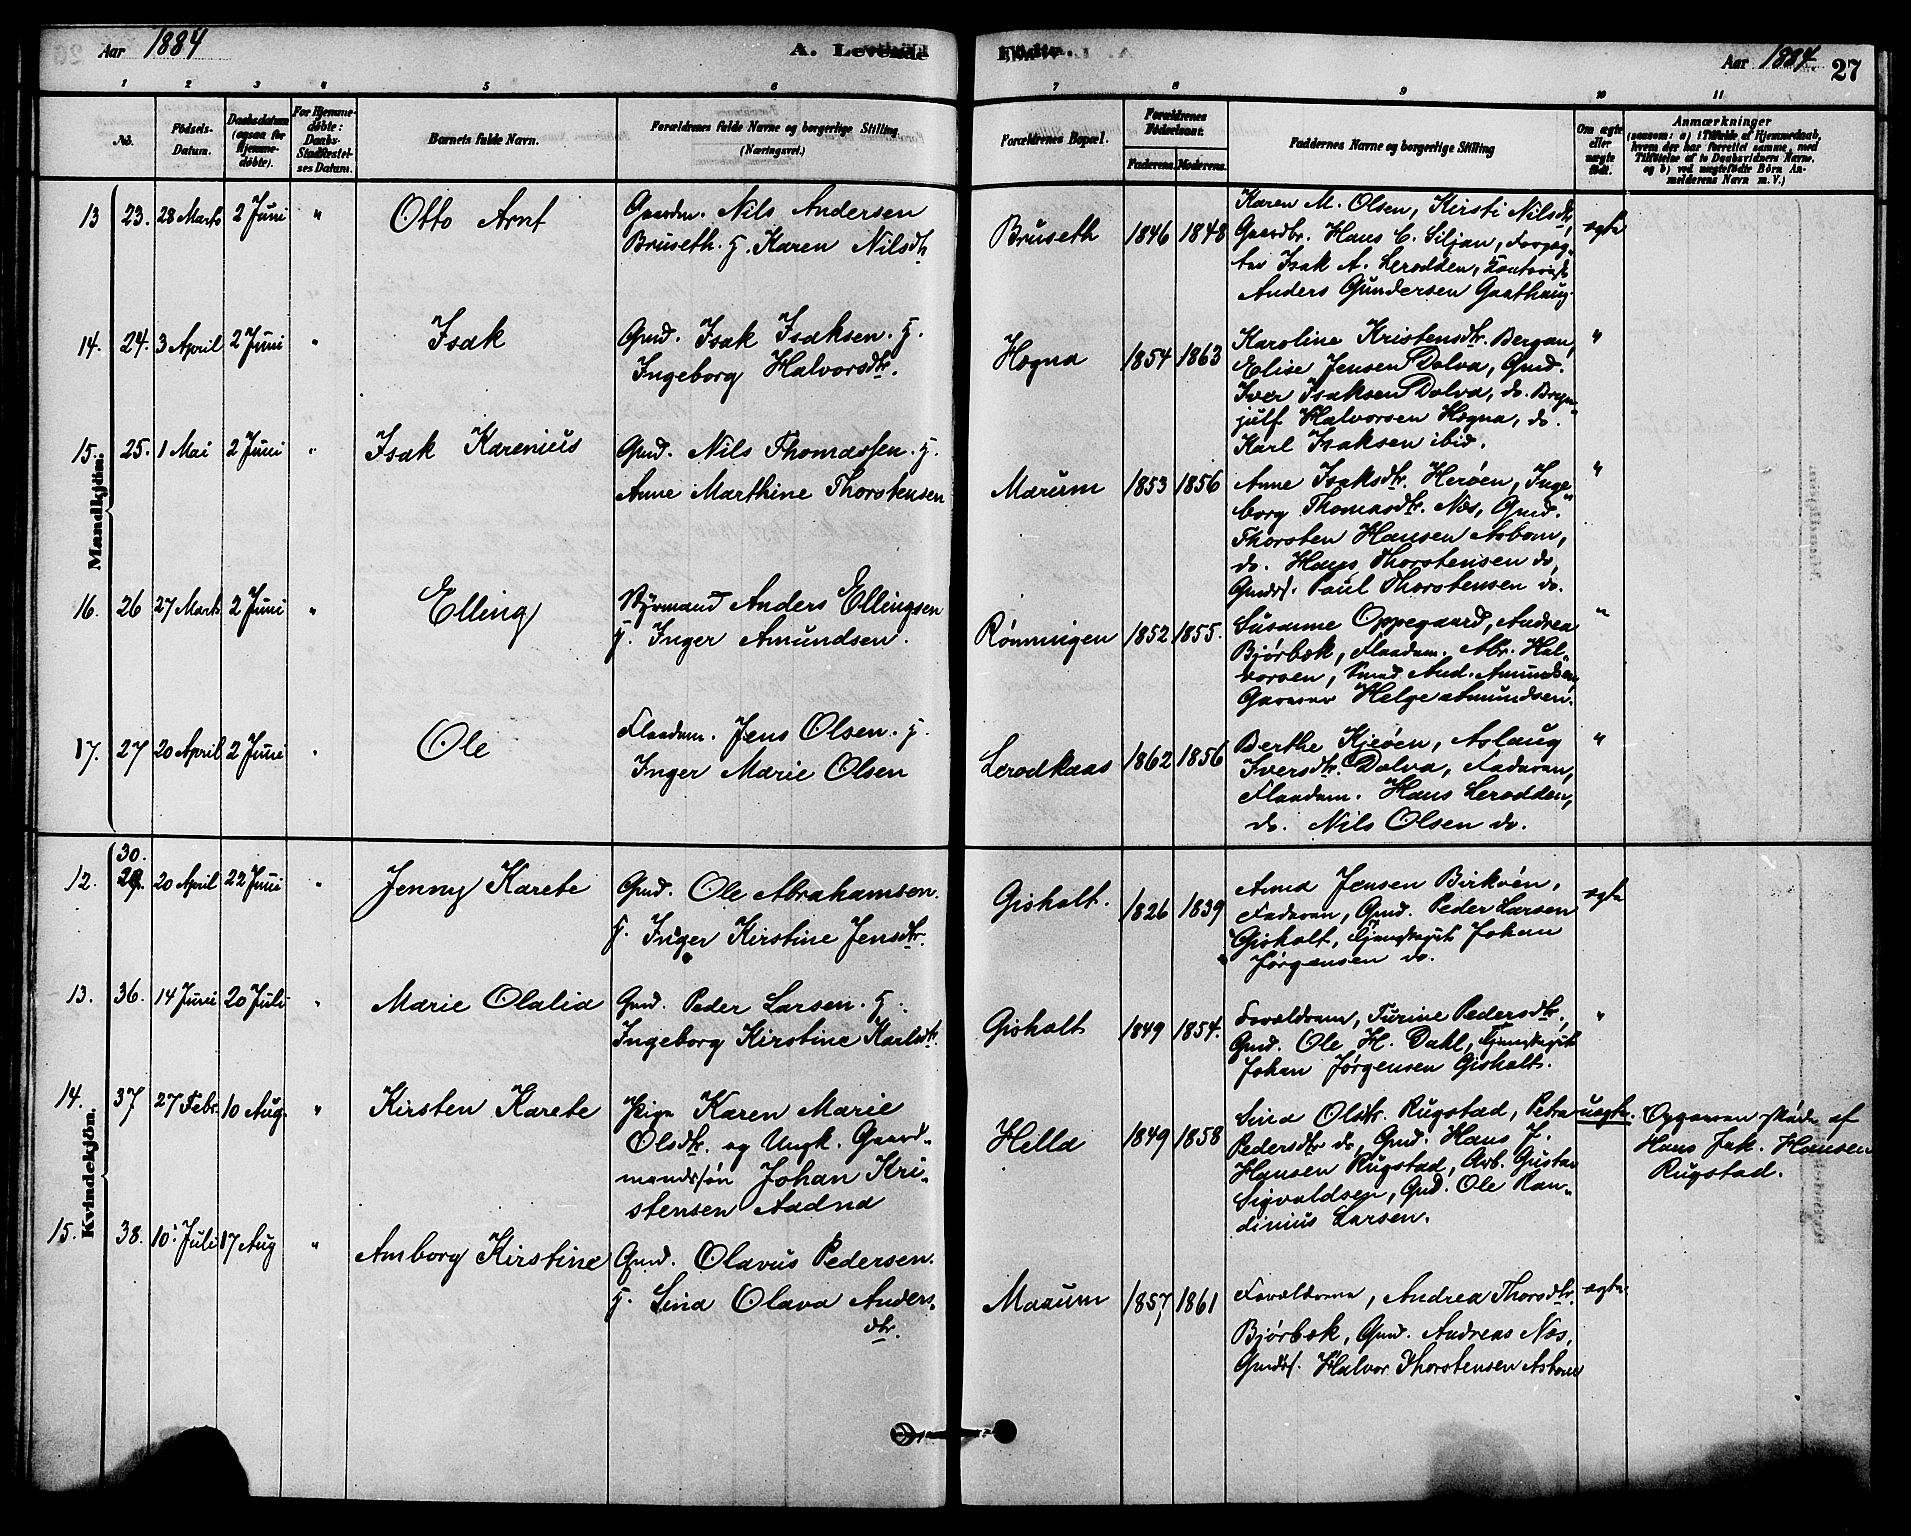 Aar 1884
A. Levende Fødte.
Aar 1884. 27
1 2 3 4 5 6 7 8 9 10 11
No.
Födsels-Datum.
Daabsdatum (ogsaa for Hjemmedöbte).
For Hjemmedöbte: Daabs-Stadfæstelses Datum.
Barnets fulde Navn.
Forældrenes fulde Navne og borgerlige Stilling
(Næringsvei.)
Forældrenes Bopæl.
Forældrenes Födselsaar.
Faderens. Moderens.
Faddernes Navne og borgerlige Stilling
Om ægte eller uægte födt.
Anmærkninger
(saasom: a) i Tilfælde af Hjemmedaab, hvem der har forrettet samme, med Tilföielse af to Daabsvidners Navne, og b) ved uægtefödte Börn Anmelderens Navn m. V.)
Mandkjön.
13 23. 28 Marts 2 Juni " Otto Arnt
Gaardm. Nils Andersen
Bruseth. H. Karen Nilsdtr
Bruseth 1846 1848
Karen M. Olsen, Kirsti Nilsdtr,
Gaardbr. Hans C. Siljan, Forpag-
ter Isak A. Lerodden, Kontorist
Anders Gundersen Gaathaug.
ægte
14. 24. 3 April 2 Juni " Isak
Gmd. Isak Isaksen. H.
Ingeborg Halvorsdtr.
Høgna 1854 1863
Karoline Kristensdtr. Bergan,
Elise Jensen Dolva, Gmd.
Iver Isaksen Dolva, do. Bryn-
julf Halvorsen Høgna, do.
Karl Isaksen ibid.
"
15. 25. 1 Mai 2 Juni " Isak Karenius
Gmd. Nils Thomassen. H.
Anne Marthine Thorstensen
Mærum 1853 1856
Anne Isaksdtr. Herøen, Inge-
borg Thomasdtr. Næs, Gmd.
Thorsten Hansen Asbom,
do. Hans Thorstensen do,
Gmdss. Paul Thorstensen do.
"
16. 26 27 Marts 2 Juni " Elling
Styrmand Anders Ellingsen
H. Inger Amundsen.
Rønningen 1852 1855.
Susanne Oppegaard, Andrea
Bjørbæk, Flaadm. Abr. Hal-
vorsen, Smed And. Amundsen,
Garver Helge Amundsen.
"
17. 27 20 April 2 Juni " Ole
Flaadm. Jens Olsen. H.
Inger Marie Olsen
Lerodkaas 1862 1856
Berthe Kjeøen, Aslaug
Iversdtr. Dolva, Faderen,
Flaadm. Hans Lerodden,
do. Nils Olsen do.
"
Kvindekjön.
12. 30. 29. 20 April 22 Juni " Jenny Karete
Gmd. Ole Abrahamsen.
H. Inger Kirstine Jensdtr.
Gisholt. 1826 1839
Anna Jensen Birkøen,
Faderen, Gmd. Peder Larsen
Gisholt, Tjenstegut Johan
Jørgensen do.
ægte
13. 36. 14 Juni 20 Juli " Marie Olalia
Gmd. Peder Larsen. H.
Ingeborg Kirstine Karlsdtr.
Gisholt 1849 1854.
Forældrene, Turine Pedersdtr,
Gmd. Ole H. Dahl, Tjenstegut
Johan Jørgensen Gisholt.
"
14. 37 27 Febr. 10 Aug. " Kirsten Karete
Pige Karen Marie
Olsdtr. og Ungk. Gaard-
mandssøn Johan Kri-
stensen Aadna
Hella 1849 1858
Sina Olsdtr. Rugstad, Petra
Pedersdtr do, Gmd. Hans J.
Hansen Rugstad, Arb. Gustav
Sigvaldsen, Gmd. Ole Ran-
dinius Larsen.
uægte.
Opgaven skede af
Hans Jak. Hansen
Rugstad.
15. 38. 10. Juli 17 Aug " Amborg Kirstine
Gmd. Olavus Pedersen.
H. Sina Olava Anders-
dtr.
Maarum 1857 1861
Forældrene, Andrea Thorsdtr.
Bjørbæk, Gmd. Andreas Næs,
Gmdss. Halvor Thorstensen Asbom
ægte.